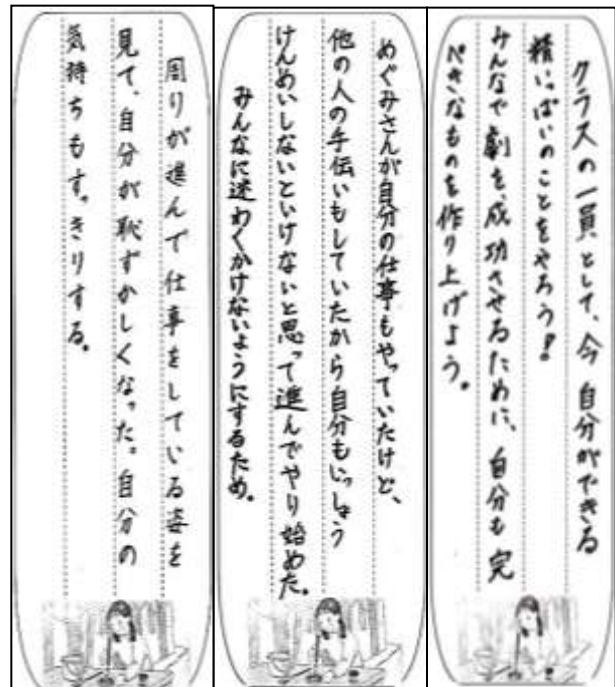 クラスの一員として、今自分ができる
精いっぱいのことをやろう!
みんなで劇を、成功させるために、自分も完
ぺきなものを作り上げよう。
めぐみさんが自分の仕事もやっていたけど、
他の人の手伝いもしていたから自分もいっしょう
けんめいしないといけないと思って進んでやり始めた。
みんなに迷わくかけないようにするため。
周りが進んで仕事をしている姿を
見て、自分が恥ずかしくなった。自分の
気持ちもすっきりする。